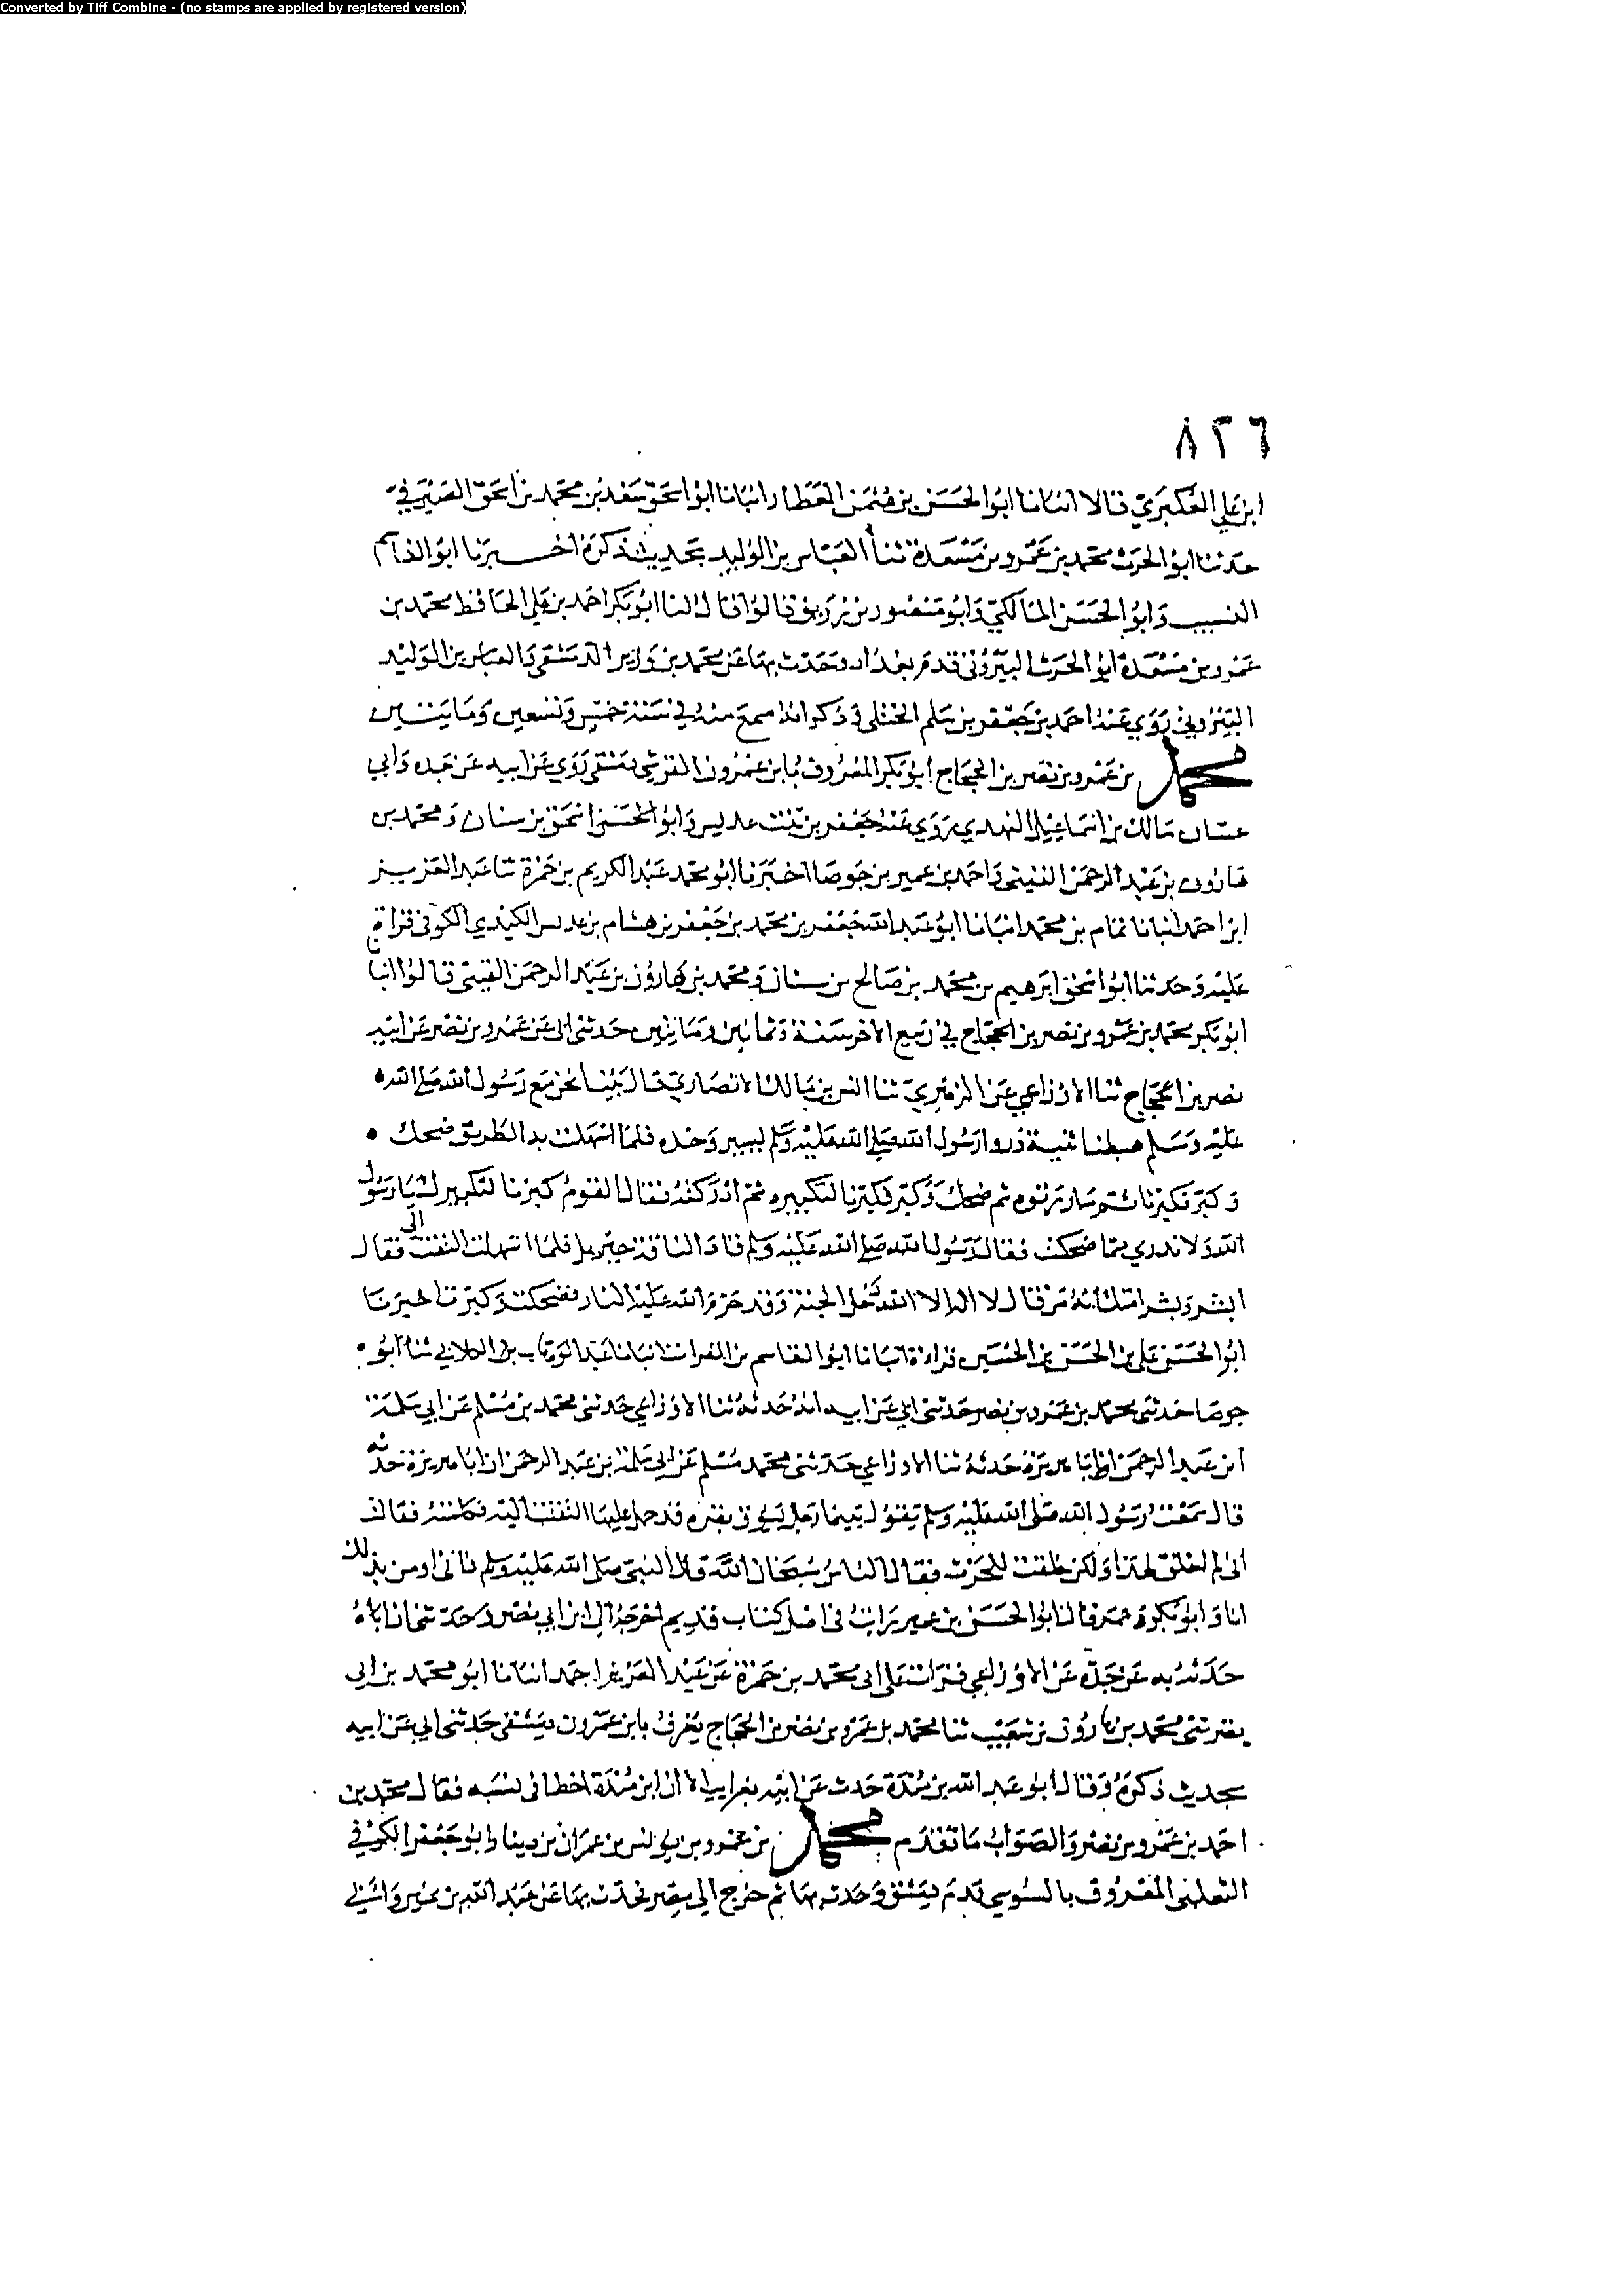 Converted by Tiff Combine - (no stamps are applied by registered version)
٨٢٦
ابن علي العكبري قالا انبانا ابو الحسن بن العطار انبانا ابو اسحق سعد بن محمد بن اسحق الصيرفي
حدثنا ابو الحرث محمد بن عمرو بن مسعدة ثنا العباس بن الوليد بحديث ذكره اخــبرنا ابو القاسم
النسيب وابو الحسن المالكي وابو منصور بن زريق قالوا قال لنا ابو بكر احمد بن علي الحافظ محمد بن
عمرو بن مسعدة ابو الحرث البيروتي قدم بغداد وحدث بها عن محمد بن وزير الدمشقي والعباس بن الوليد
البيروتي روي عنه احمد بن جعفر بن سلم الختلي وذكر انه سمع منه في سنة خمس وتسعين ومايتين
محمد بن عمرو بن نصر بن الحجاج ابو بكر المعروف بابن عمرون القرشي دمشقي روي عن ابيه عن جده وابي
غسان مالك بن اسماعيل النهدي روي عنه جعفر بن بنت عديس وابو الحسن اسحق بن سنان ومحمد بن
هارون بن عبد الرحمن القيني واحمد بن عمير بن جوصا اخبرنا ابو محمد عبد الكريم بن حمزة ثنا عبد العزيز
ابن احمد انبانا تمام بن محمد انبانا ابو عبد الله جعفر بن محمد بن جعفر بن هشام بن عدبس الكندي الكوفي قراة
عليه وحدثنا ابو اسحق ابرهيم بن محمد بن صالح بن سنان ومحمد بن هارون بن عبد الرحمن القيني قالوا انبا
ابو بكر محمد بن عمرو بن نصر بن الحجاج في ربيع الاخر سنة وثمانين ومايتين حدثني ابي عن عمرو بن نصر عن ابيه
نصر بن الحجاج ثنا الاوزاعي عن الزهري ثنا انس بن مالك الانصاري قال بينا نحن مع رسول الله صلى الله
عليه وسلم هبطنا ثنية ورسول الله صلى الله عليه وسلم يسير وحده فلما اسهلت به الطريق ضحك
وكبر فكبرنا ثم سار ثم ضحك وكبر فكبرنا لتكبيره ثم ادركنه فقال القوم كبرنا لتكبيرك يا رسول
الله ولا ندري مما ضحكت فقال رسول الله صلى الله عليه وسلم قاد الناقة جبريل فلما اسهلت التفت الي فقال
ابشر وبشر امتك انه من قال لا اله الا الله دخل الجنة وقد حرم الله عليه النار فضحكت وكبرت اخبرنا
ابو الحسن علي بن الحسن بن الحسين قراءة انبانا ابو القاسم بن الفرات انبانا عبد الوهاب الكلابي ثنا ابو
جوصا حدثني محمد بن عمرو بن نصر حدثني ابي عن ابيه انه حدثه ثنا الاوزاعي حدثني محمد بن مسلم عن ابي سلمة
ابن عبد الرحمن ان ابا هريرة حدثه ثنا الاوزاعي حدثني محمد مسلم عن ابي سلمة بن عبد الرحمن ان ابا هريرة حدثه
قال سمعت رسول الله صلى الله عليه وسلم يقول بينما رجل يسوق بقرة قد حمل عليها التفتت اليه فكلمته فقالت
اني لم اخلق لهذا ولكن خلقت للحرث فقال الناس سبحان الله قال النبي صلى الله عليه وسلم فاني اومن بذلك
انا وابو بكر وعمر قال ابو الحسن بن عمير قرات في اصل كتاب قديم اخرجه الي ابن ابي نصر وحدثني ان اباه
حدثه به عن جده عن الاوزاعي قرات على ابي محمد بن حمزة عن عبد العزيز بن احمد انبانا ابو محمد بن ابي
نصر ثني محمد بن هارون بن شعيب ثنا محمد بن عمرو بن نصر بن الحجاج يعرف بابن عمرون دمشقي حدثني ابي عن ابيه
بحديث ذكره وقال ابو عبد الله بن مندة حدث عن ابيه بغرايب الا ان ابن مندة اخطا في نسبه فقال محمد بن
احمد بن عمرو بن نصر والصواب ما تقدم محمد بن عمرو بن يونس بن عمران بن دينار ابو جعفر الكوفي
التغلبي المعروف بالسوسي قدم دمشق وحدث بها ثم خرج الي مصر فحدث بها عن عبد الله بن نمير واسباط